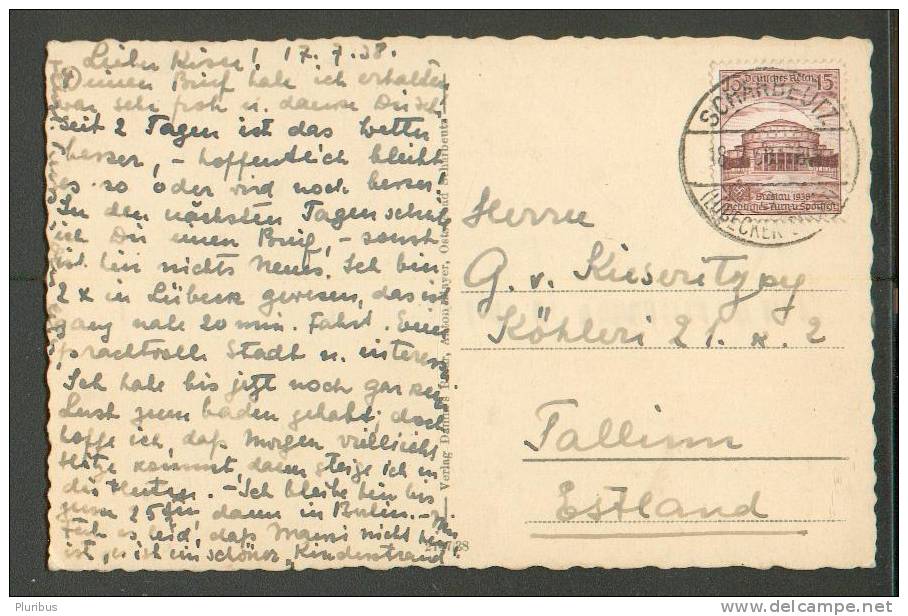 17.7.38.
Deinen Brief habe ich erhalten
war sehr froh u. danke Dir
Seit 2 Tagen ist das Wetter
besser, - hoffentlich bleibt
es so oder wird noch besser
In den nächsten Tagen
ich Dir einen Brief, - sonst
ist hier nichts Neues. Ich bin
2 x in Lübeck gewesen, das ist
ganz nahe 20 min. Fahrt. Eine
prachtvolle Stadt u. interess
Ich habe bis jetzt noch gar kein
Lust zum baden gehabt, doch
hoffe ich, daß Morgen vielleicht
Hitze kommt, dann steige ich in
die - Ich bleibe hier bis
zum 25 dann in Berlin. -
es leid, daß nicht hier
ist, es ist ein schöner Kinderstrand
Verlag Ostseebad Scharbeutz
Deutsches Reich 15
Breslau 1938
SCHARBEUTZ
(LÜBECKER
Herrn
G. v. Kieseritzky
Köhleri 21. k. 2
Tallinn
Estland
Pluribus
www.delcampe.net